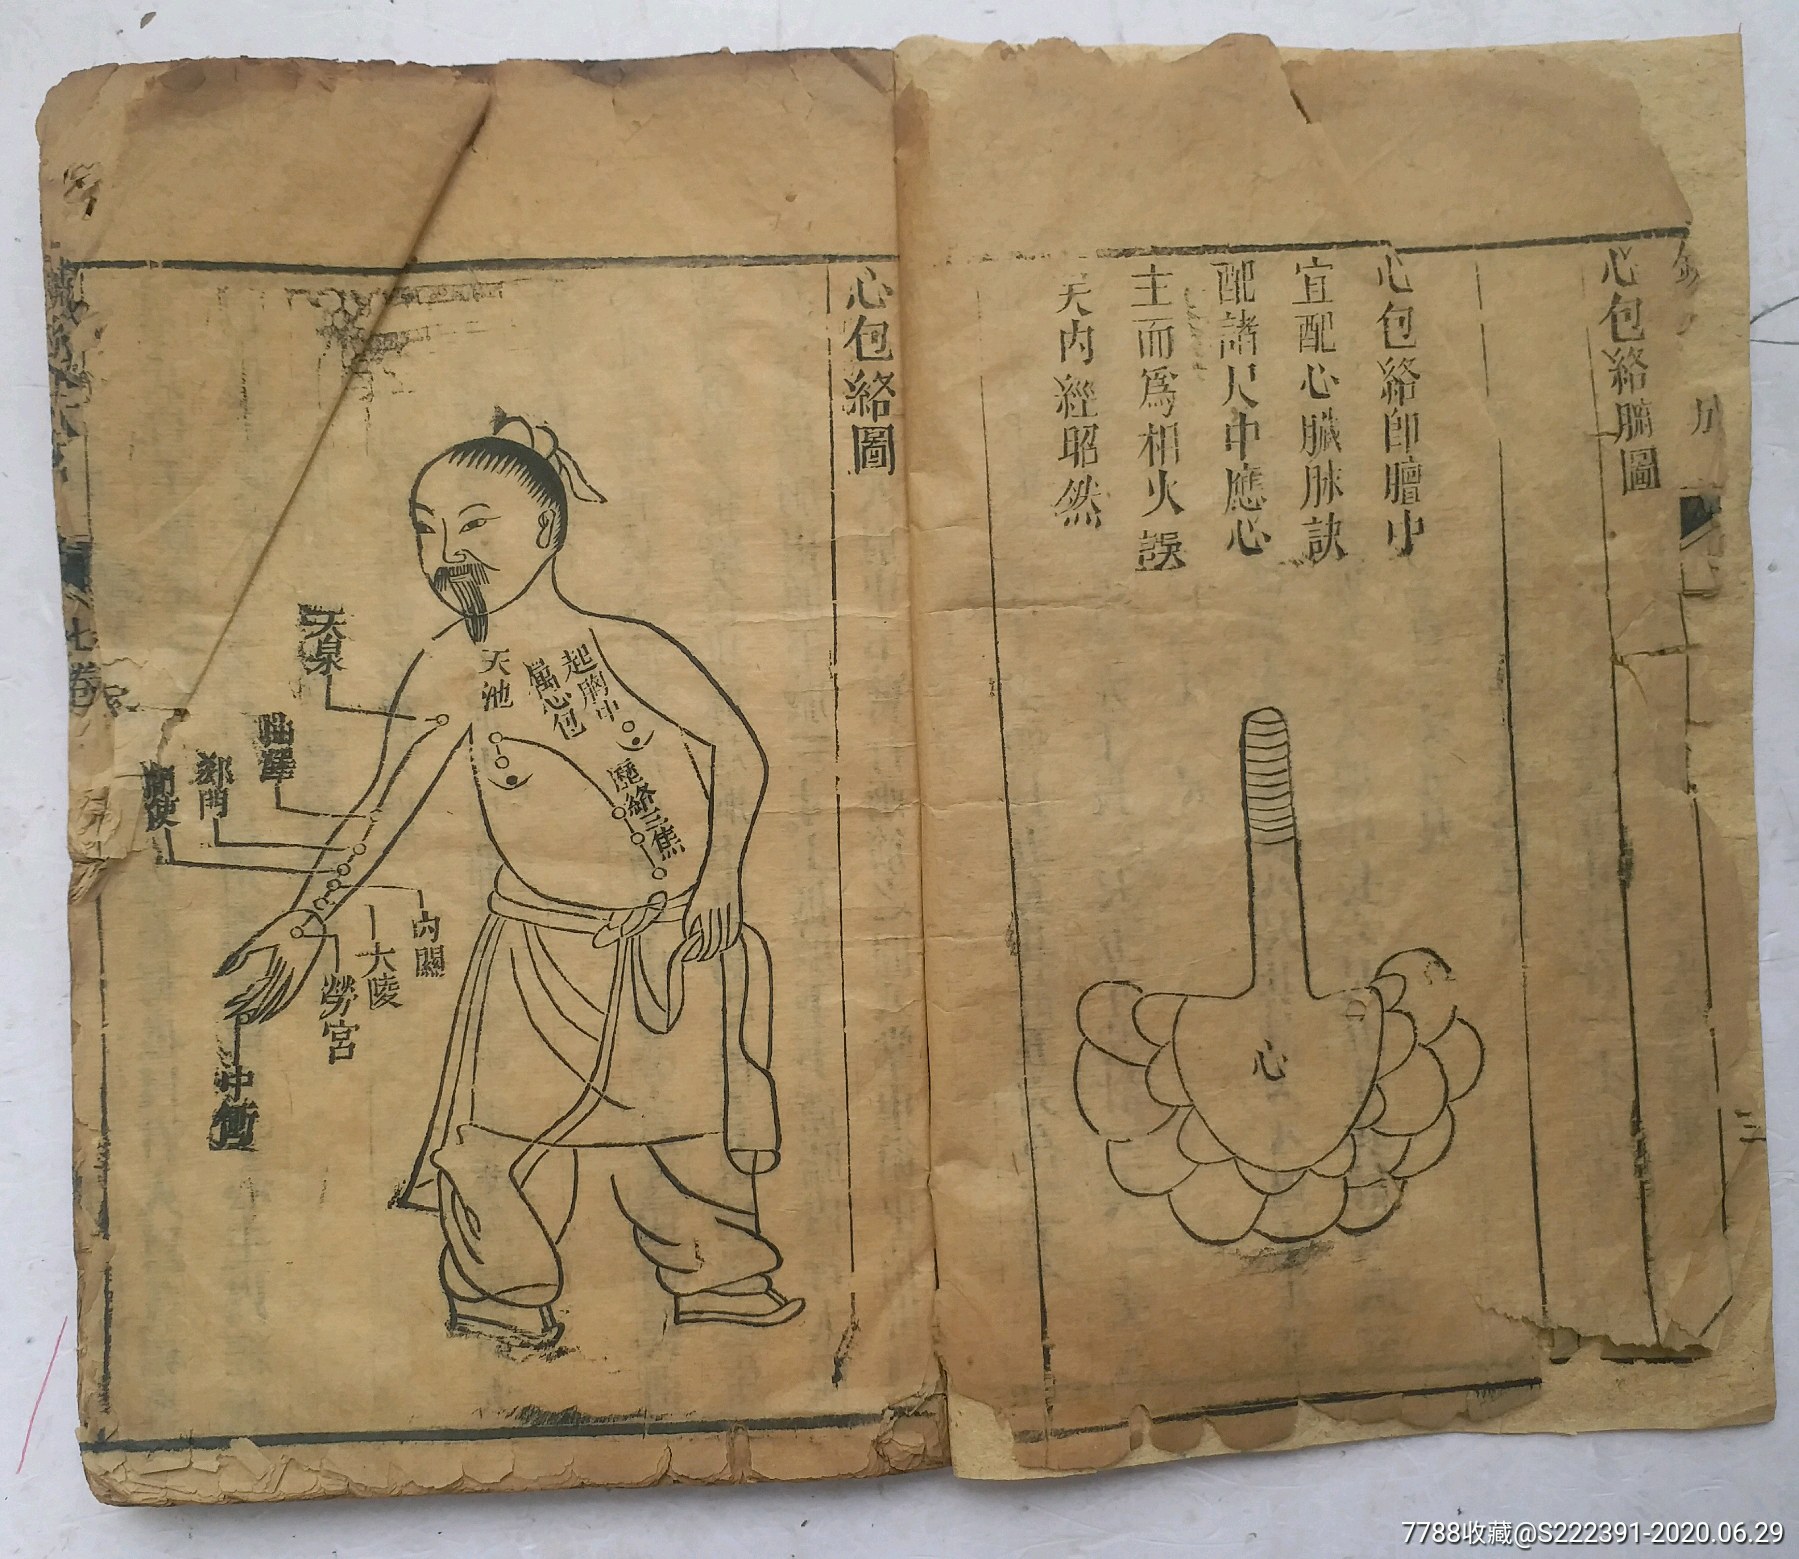 心包絡臟圖
心包絡卽膻中
宜配心臟脉訣
配諸尺中應心
主而爲相火誤
矣內經昭然
心
三
心包絡圖
起胸中
屬心包
歷絡三焦
天池
天泉
曲澤
郄門
間使
內關
大陵
勞宮
中衝
七卷
7788收藏@S222391-2020.06.29